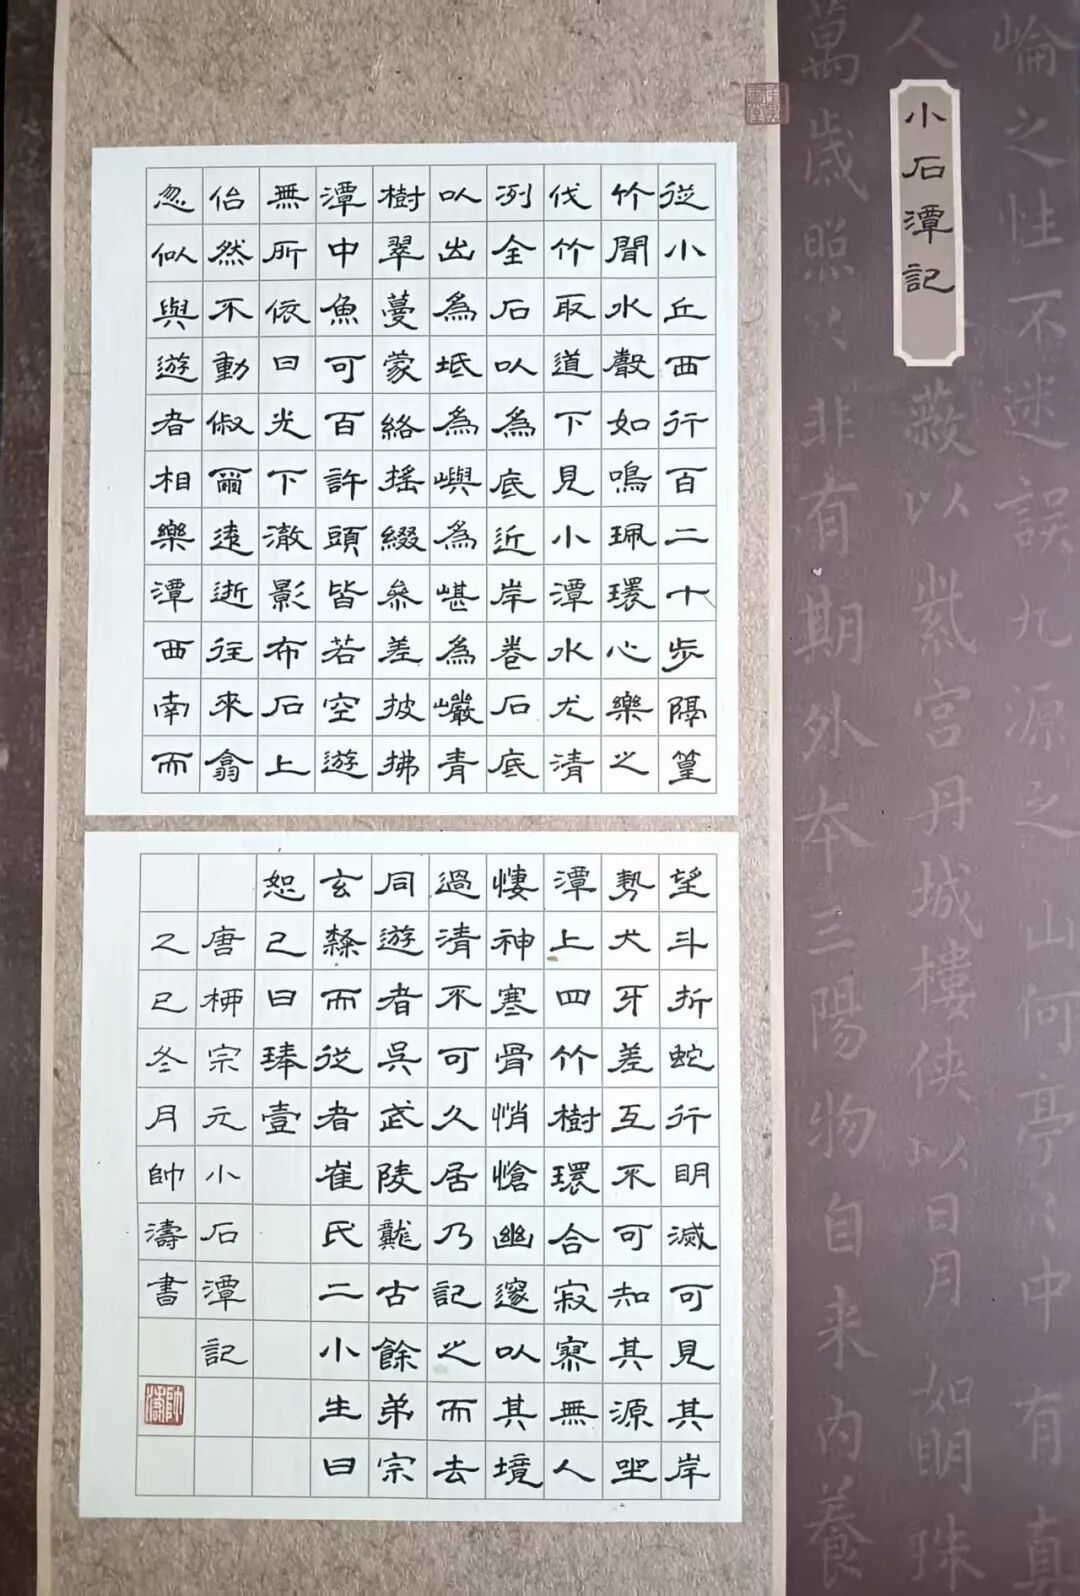 崘之性不迷誤九源之山何亭〻中有真
人
蔽以紫宮丹城樓俠以日月如明珠
萬歲照〻非有期外本三陽物自来内養
小石潭記
從小丘西行百二十步隔篁
竹聞水聲如鳴珮環心樂之
伐竹取道下見小潭水尤清
冽全石以為底近岸卷石底
以出為坻為嶼為嵁為巖青
樹翠蔓蒙絡搖綴參差披拂
潭中魚可百許頭皆若空遊
無所依日光下澈影布石上
佁然不動俶爾遠逝往來翕
忽似與遊者相樂潭西南而
望斗折蛇行明滅可見其岸
勢犬牙差互不可知其源坐
潭上四竹樹環合寂寥無人
悽神寒骨悄愴幽邃以其境
過清不可久居乃記之而去
同遊者吳武陵龔古餘弟宗
玄隸而從者崔氏二小生曰
恕己曰琫壹
唐柳宗元小石潭記
乙巳冬月帥濤書
帥濤